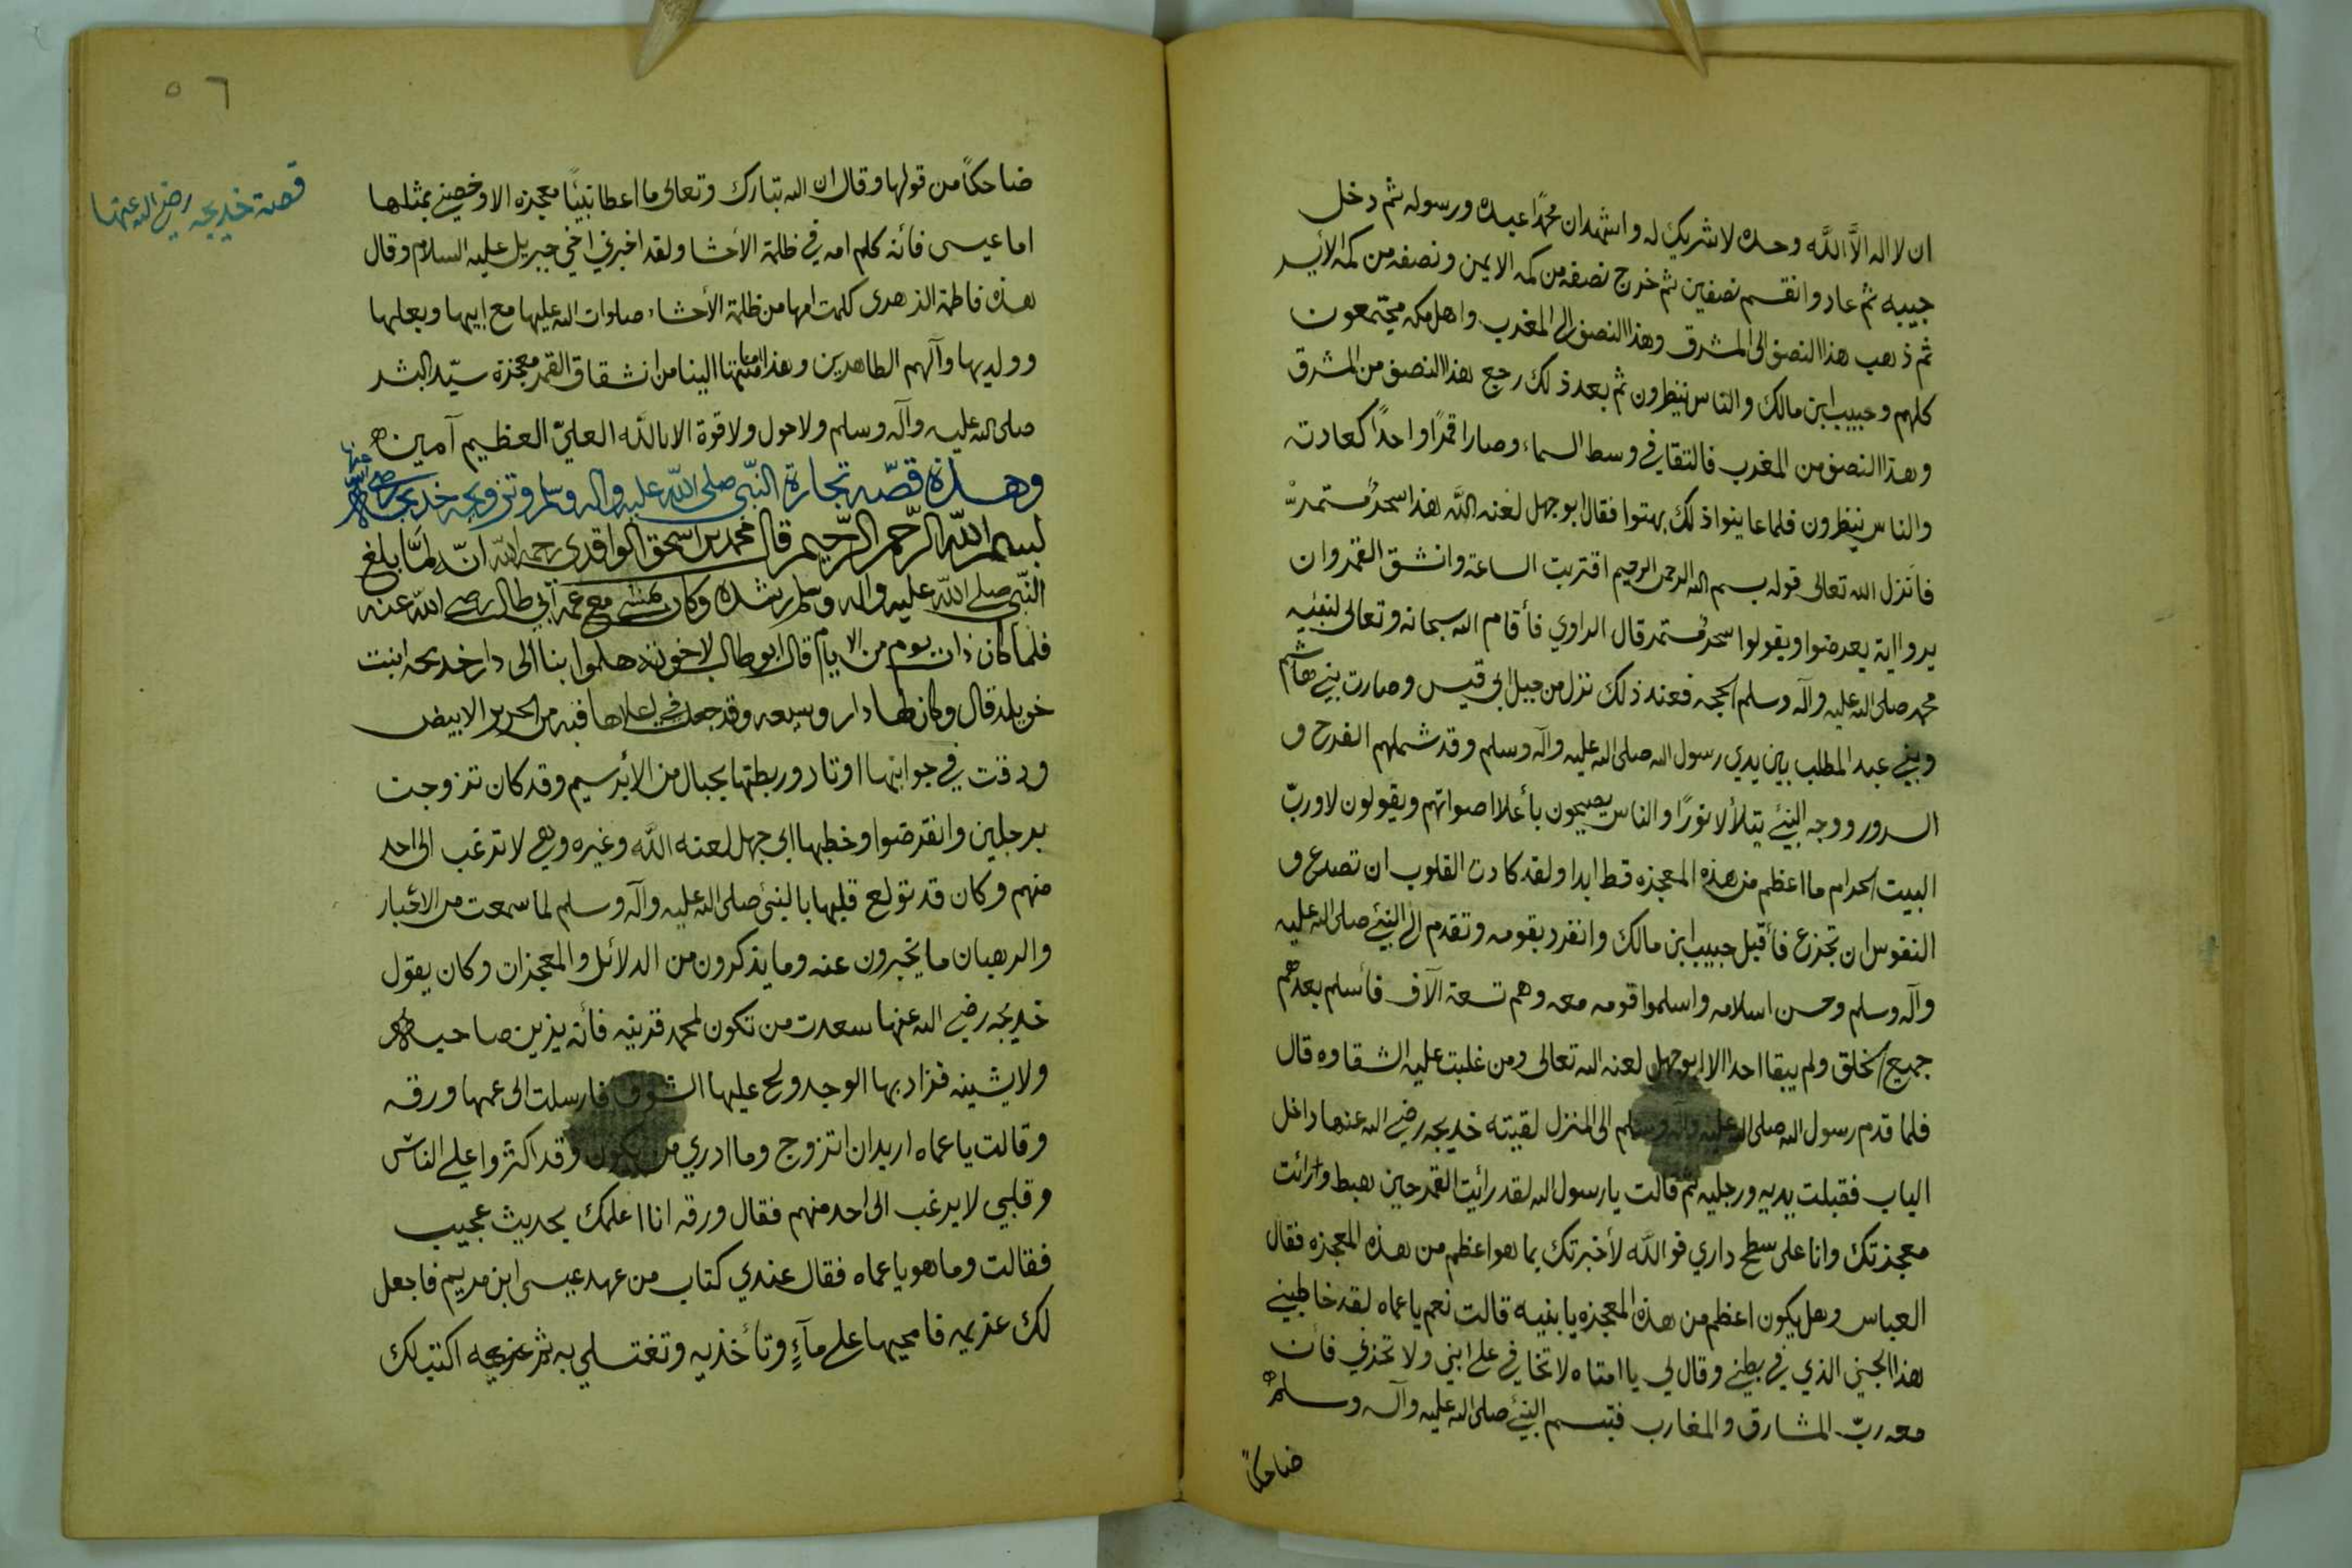 ان لا اله الا الله وحده لا شريك له واشهد ان محمدًا عبده ورسوله ثم دخل
جيبه ثم عاد وانقسم نصفين ثم خرج نصفه من كمه الايمن ونصفه من كمه الأيسر
ثم ذهب هذا النصف الى المشرق وهذا النصف الى المغرب واهل مكه مجتمعون
كلهم وحبيب ابن مالك والناس ينظرون ثم بعد ذلك رجع هذا النصف من المشرق
وهذا النصف من المغرب فالتقا في وسط السماء وصارا قمرًا واحدًا كعادته
والناس ينظرون فلما عاينوا ذلك بهتوا فقال ابو جهل لعنه الله هذا سحرٌ مستمرّ
فأنزل الله تعالى قوله بسم الله الرحمن الرحيم اقتربت الساعة وانشق القمر وان
يروا اية يعرضوا ويقولوا سحرٌ مستمر قال الراوي فأقام الله سبحانه وتعالى لنبيّه
محمد صلى الله عليه وآله وسلم الحجه فعند ذلك نزل من جبل ابي قيس وصارت بني هاشم
وبني عبد المطلب بين يدي رسول الله صلى الله عليه وآله وسلم وقد شملهم الفرح و
السرور ووجه النبيّ يتلألأ نورًا والناس يصيحون بأعلا اصواتهم ويقولون لا وربّ
البيت الحرام ما اعظم من هذه المعجزه قط ابدا ولقد كادت القلوب ان تصدع و
النفوس ان تجزع فأقبل حبيب ابن مالك وانفرد بقومه وتقدم الى النبيّ صلى الله عليه
وآله وسلم وحسن اسلامه واسلموا قومه معه وهم تسعة الآف فأسلم بعدهم
جميع الخلق ولم يبقا احد الا ابو جهل لعنه الله تعالى ومن غلبت عليه الشقاوه قال
فلما قدم رسول الله صلى الله عليه وآله وسلم الى المنزل لقيته خديجه رضي الله عنها داخل
الباب فقبلت يديه ورجليه ثم قالت يا رسول الله لقد رائيت القمر حين هبط ورائت
معجزتك وانا على سطح داري فو الله لأخبرتك بما هو اعظم من هذه المعجزه فقال
العباس وهل يكون اعظم من هذه المعجزه يا بنيه قالت نعم يا عماه لقد خاطبني
هذا الجنين الذي في بطني وقال لي يا امتاه لا تخافي على ابي ولا تحزني فأن
معه ربّ المشارق والمغارب فتبسم النبيّ صلى الله عليه وآله وسلم
ضاحكًا
٥٦
قصة خديجه رضي الله عنها
ضاحكًا من قولها وقال ان الله تبارك وتعالى ما اعطا نبيًا معجزه الا وخصني بمثلها
اما عيسى فأنه كلم امه في ظلمة الأحشا ولقد اخبرني اخي جبريل عليه السلام وقال
هذه فاطمة الزهرى كلمت امها من ظلمة الأحشاء صلوات الله عليها مع ابيها وبعلها
وولديها وآلهم الطاهرين وهذا ما انتها الينا من انشقاق القمر معجزة سيّد البشر
صلى الله عليه وآله وسلم ولا حول ولا قوة الا بالله العليّ العظيم آمين
وهذة قصّه تجارة النبّي صلى الله عليه واله وسلم وتزويجه خديجه رضي الله عنها
بسم الله الرّحمن الرّحيم قال محمد بن اسحق الواقدي رحمه الله انّه لمّا بلغ
النّبي صلى الله عليه واله وسلم رشده وكان يمشي مع عمه أبي طالب رضي الله عنه
فلما كان ذات يوم من الايام قال ابو طالب لاخوته هلموا بنا الى دار خديجه ابنت
خويلد قال وكان لها دار وسيعه وقد جعلت في اعلاها قبه من الحرير الابيض
ودقت في جوانبها اوتاد وربطتها بحبال من الأبرسيم وقد كان تزوجت
برجلين وانقرضوا وخطبها ابي جهل لعنه الله وغيره وهي لا ترغب الى احد
منهم وكان قد تولع قلبها بالنبيّ صلى الله عليه وآله وسلم لما سمعت من الاخبار
والرهبان ما يخبرون عنه وما يذكرون من الدلائل والمعجزات وكان يقول
خديجه رضي الله عنها سعدت من تكون لمحمد قرينه فأنه يزين صاحبه
ولا يشينه فزاد بها الوجد ولح عليها الشوق فارسلت الى عمها ورقه
وقالت يا عماه اريد ان اتزوج وما ادري من يكون وقد اكثروا على الناس
وقلبي لا يرغب الى احد منهم فقال ورقه انا اعلمك بحديث عجيب
فقالت وما هو يا عماه فقال عندي كتاب من عهد عيسى ابن مريم فاجعل
لك عزيمه فامحيها على مآءٍ وتأخذيه وتغتسلي به ثم اكتب لك